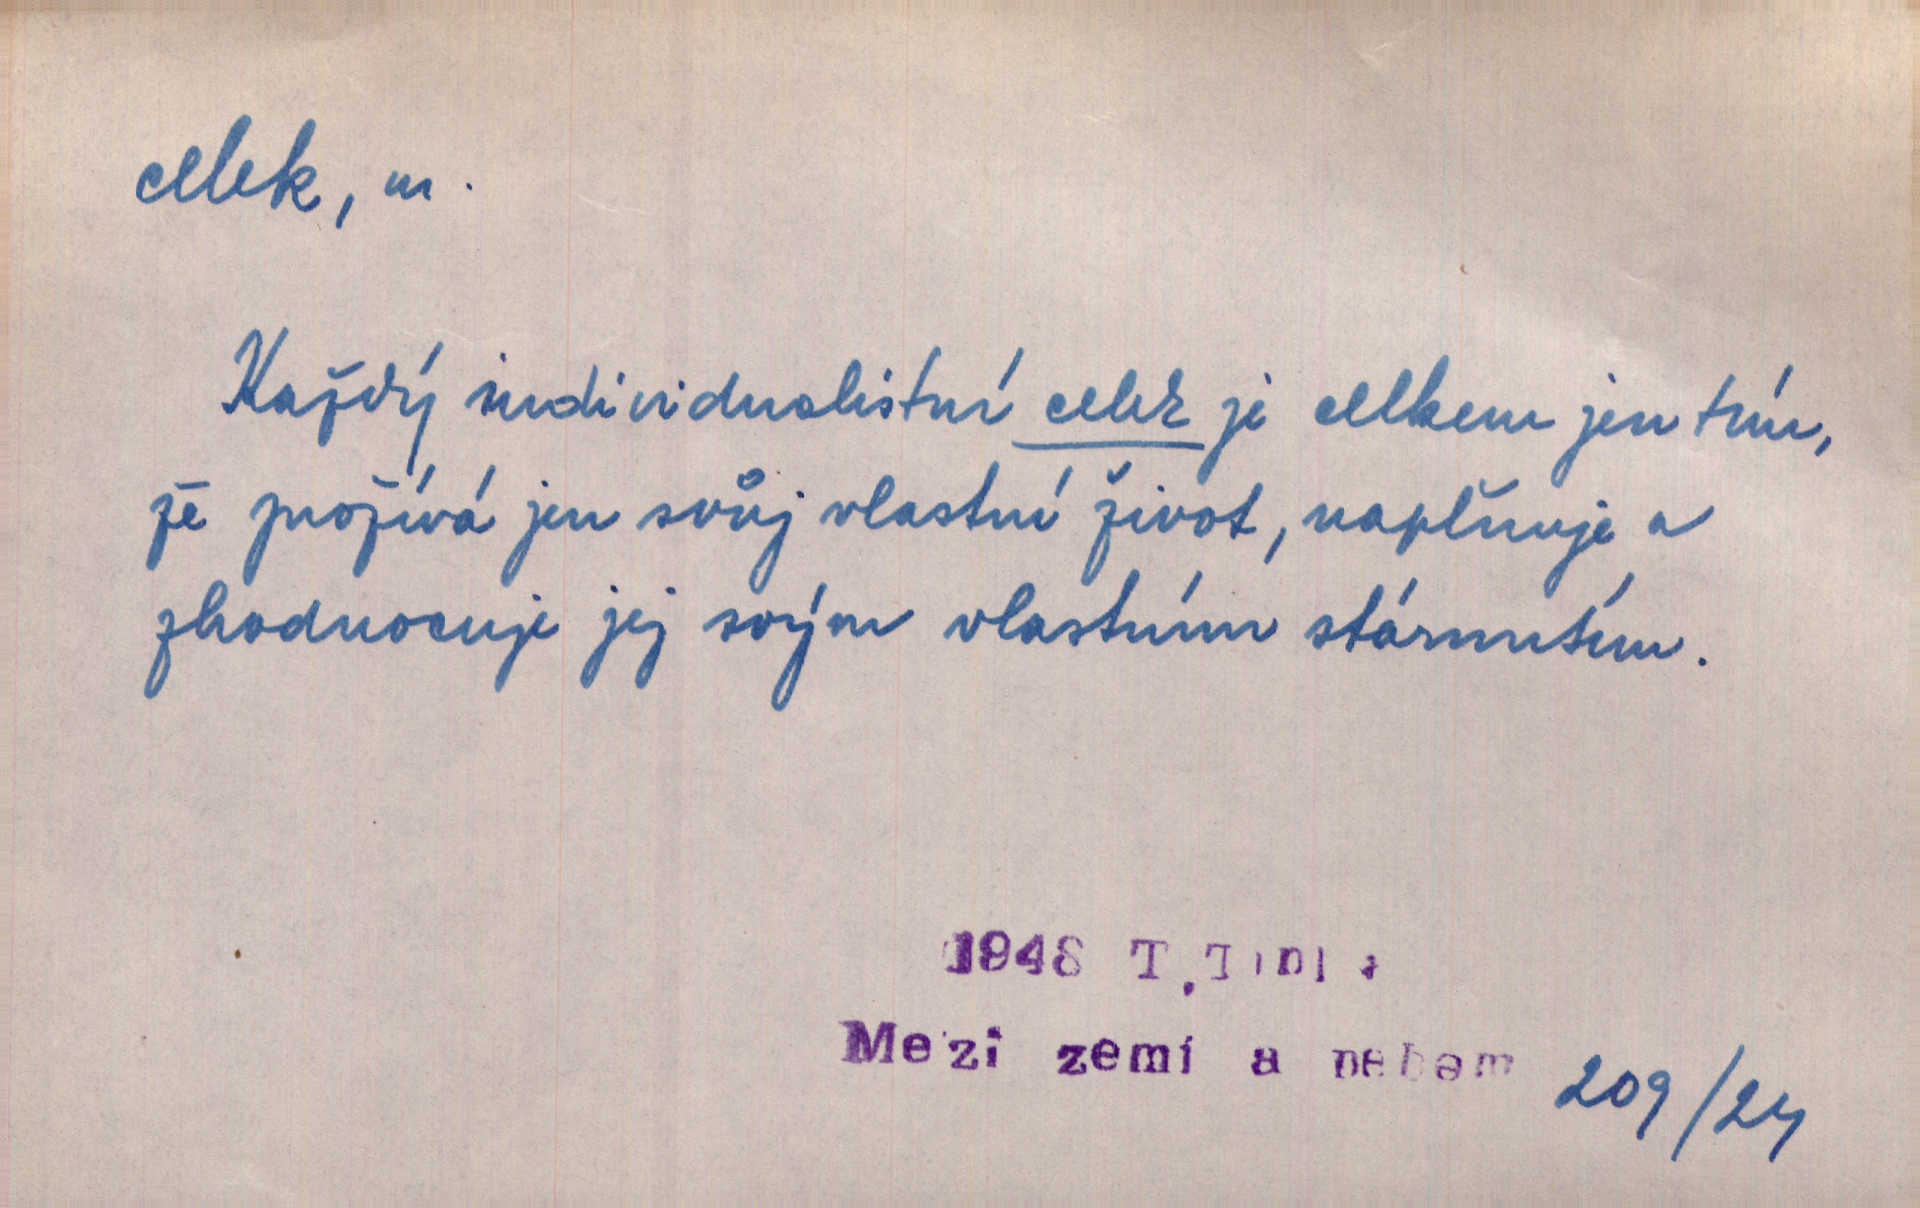 celek, m.
Každý individualistní celek je celkem jen tím,
že prožívá jen svůj vlastní život, naplňuje a
zhodnocuje jej svým vlastním stárnutím.
1948 T.
Mezi zemí a nebem 209/24